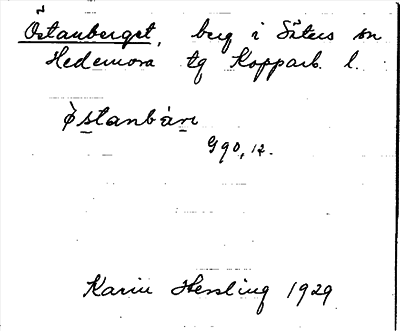 Östanberget, berg i Säters sn
Hedemora tg Kopparb. l.
ø̀stanbær
G 90, 12.
Karin Hessling 1929